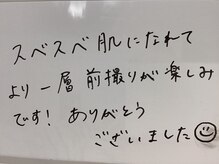 スベスベ肌になれて
より一層前撮りが楽しみ
です！ありがとう
ございました